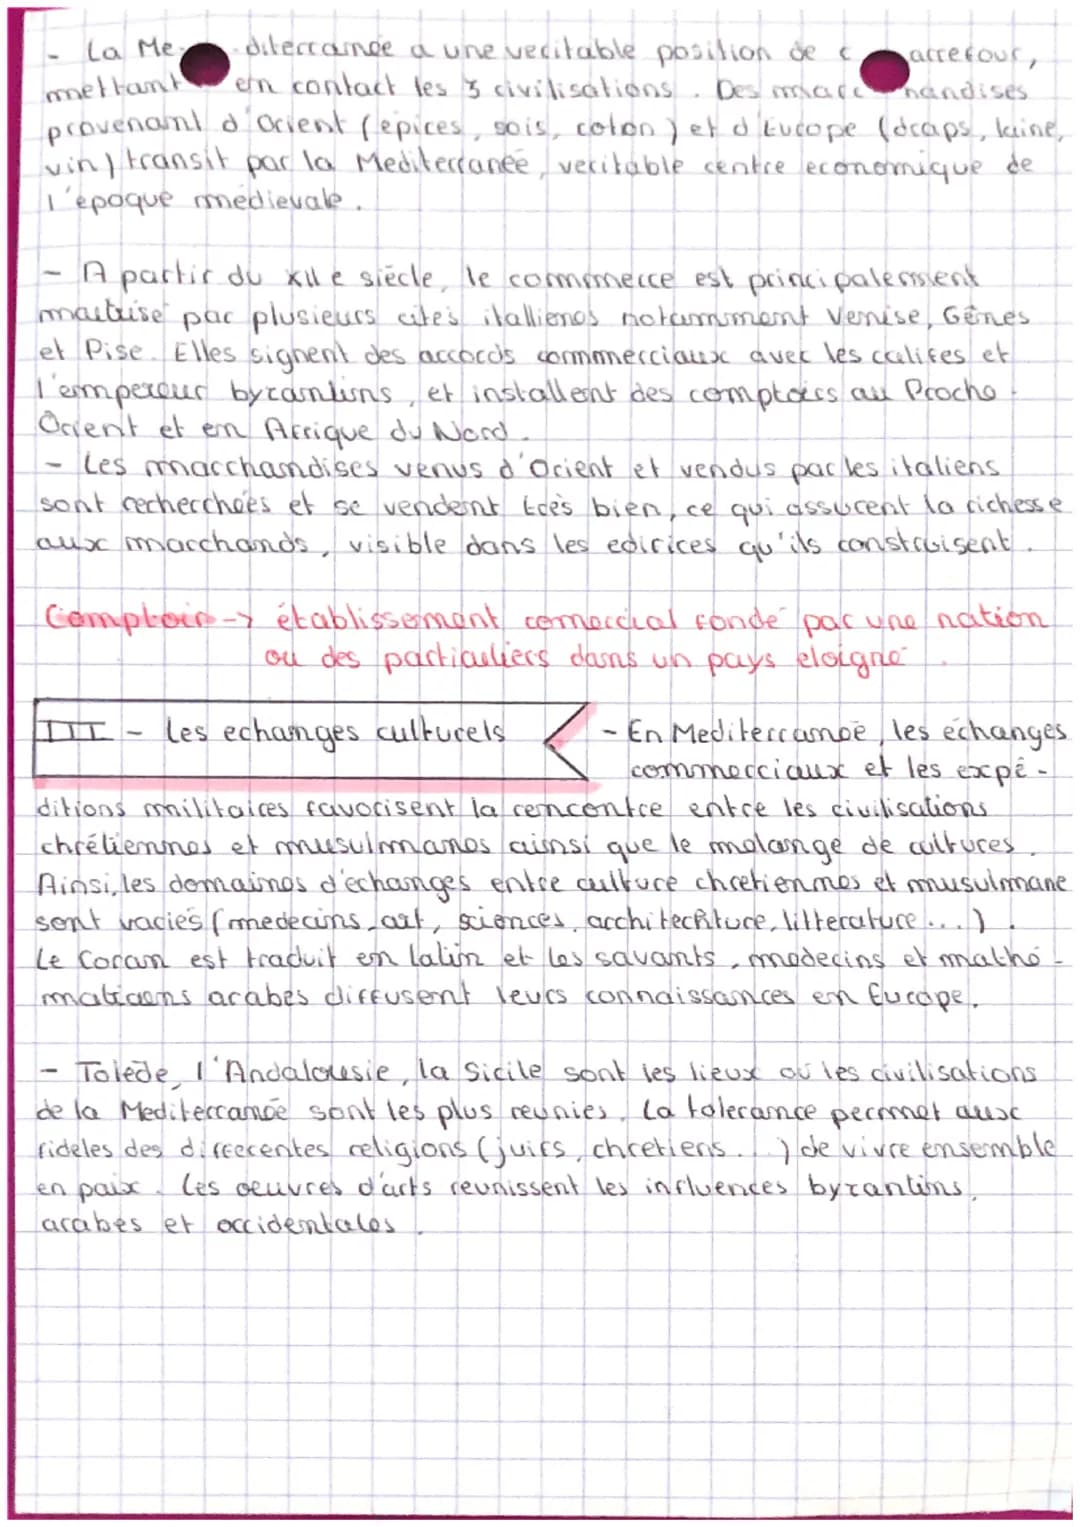 - La Mediterranée a une veritable position de carrefour,
mettant en contact les 3 civilisations. Des marchandises
provenant d'Orient (epices, sois, coton) et d'Europe (draps, laine,
vin) transit par la Mediterranée, veritable centre economique de
l'époque médievale.
- A partir du XIIe siècle, le commmerce est principalement
maitrisé par plusieurs cités itallienes notammment Venise, Gênes
et Pise. Elles signent des accords commmerciaux avec les califes et
l'empereur byzantins, et installent des comptoirs au Proche-
Orient et en Afrique du Nord.
- Les marchandises venus d'Orient et vendus par les italiens
sont recherchées et se vendent très bien, ce qui assurent la richesse
aux marchands, visible dans les edifices qu'ils construisent.
Comptoir -> établissement comercial fondé par une nation
ou des particuliers dans un pays eloigné.
III - Les echanges culturels
- En Mediterranée, les échanges
commerciaux et les expé-
ditions militaires favorisent la rencontre entre les civilisations
chrétiennes et musulmanes ainsi que le melange de cultures.
Ainsi, les domaines d'échanges entre culture chretiennes et musulmane
sont variés (medecins, art, sciences, architechture, litterature...).
Le Coran est traduit en latin et les savants, medecins et mathé-
maticiens arabes diffusent leurs connaissances en Europe.
- Tolède, l'Andalousie, la Sicile sont les lieux où les civilisations
de la Mediterranée sont les plus reunies. La tolerance permet aux
fideles des differentes religions (juifs, chretiens...) de vivre ensemble
en paix. Les oeuvres d'arts reunissent les influences byzantins,
arabes et occidentales.